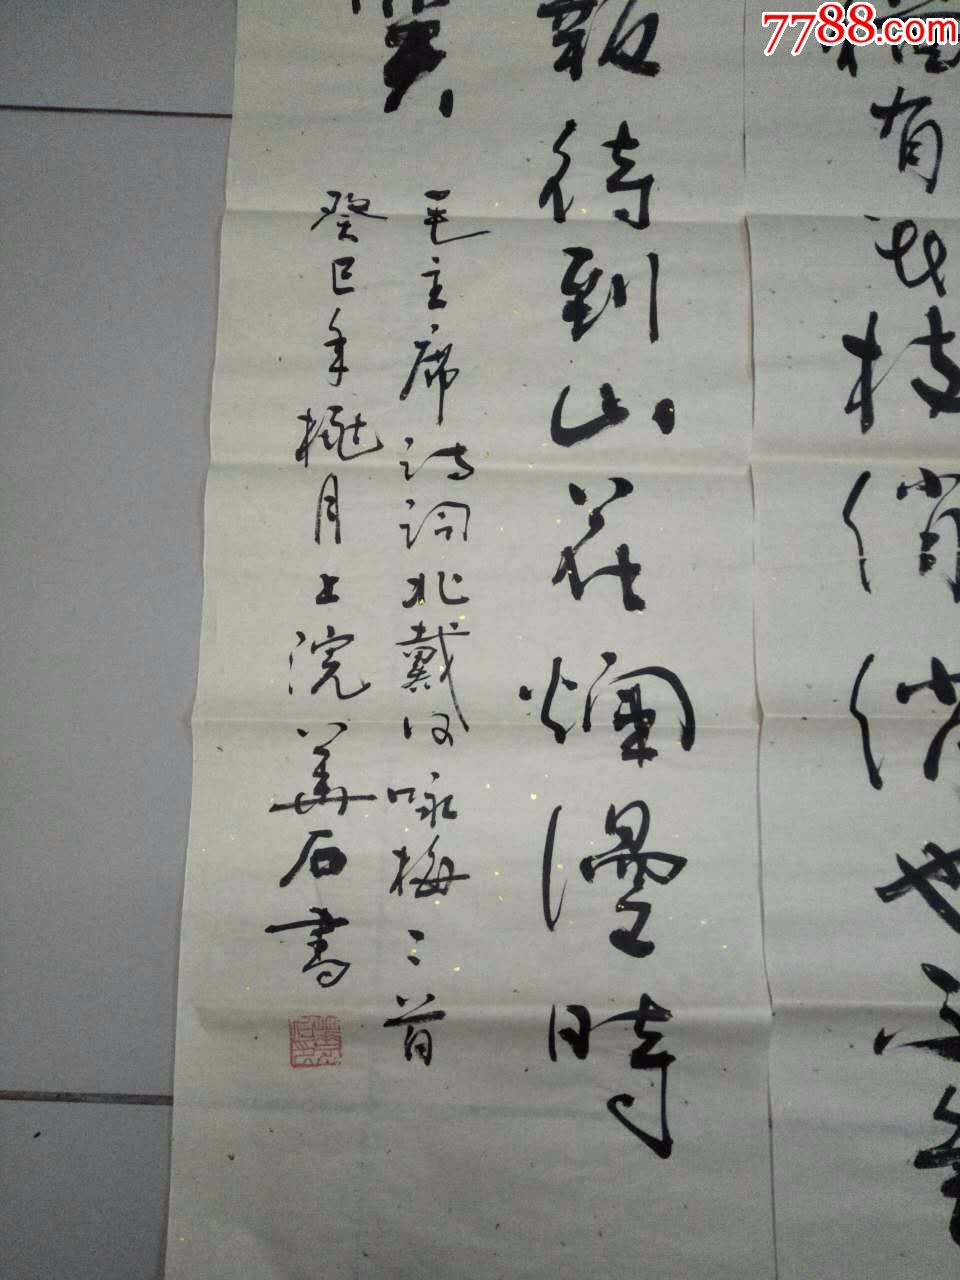 7788.com
猶有花枝俏俏也不爭
報待到山花爛漫時
笑
毛主席詩詞北戴河咏梅二首
癸巳年桃月上浣華石書